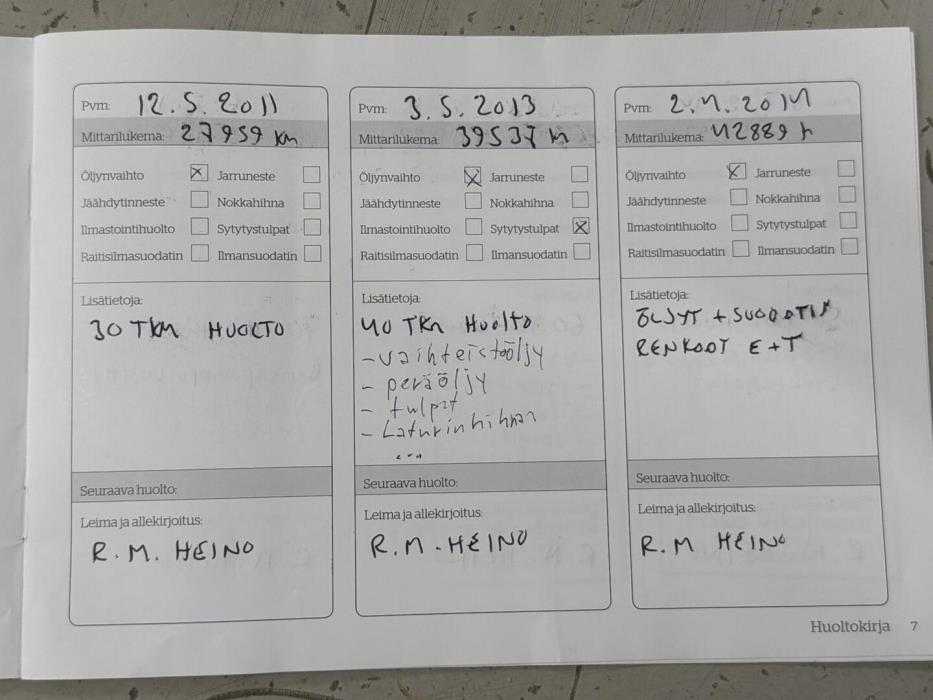 Pvm: 12.5.2011
Mittarilukema: 27959 km
Öljynvaihto Jarruneste
Jäähdytinneste Nokkahihna
Ilmastointihuolto Sytytystulpat
Raitisilmasuodatin Ilmansuodatin
Lisätietoja:
30 TKM HUOLTO
Seuraava huolto:
Leima ja allekirjoitus:
R.M. HEINO
Pvm: 3.5.2013
Mittarilukema: 39537 km
Öljynvaihto Jarruneste
Jäähdytinneste Nokkahihna
Ilmastointihuolto Sytytystulpat
Raitisilmasuodatin Ilmansuodatin
Lisätietoja:
40 TKM Huolto
- vaihteistoöljy
- peräöljy
- tulpat
- Laturinhihnan
...
Seuraava huolto:
Leima ja allekirjoitus:
R.M. HEINO
Pvm: 2.4.2014
Mittarilukema: 42889
Öljynvaihto Jarruneste
Jäähdytinneste Nokkahihna
Ilmastointihuolto Sytytystulpat
Raitisilmasuodatin Ilmansuodatin
Lisätietoja:
ÖLJYT + SUODATIN
RENKAAT E+T
Seuraava huolto:
Leima ja allekirjoitus:
R.M HEINO
Huoltokirja 7